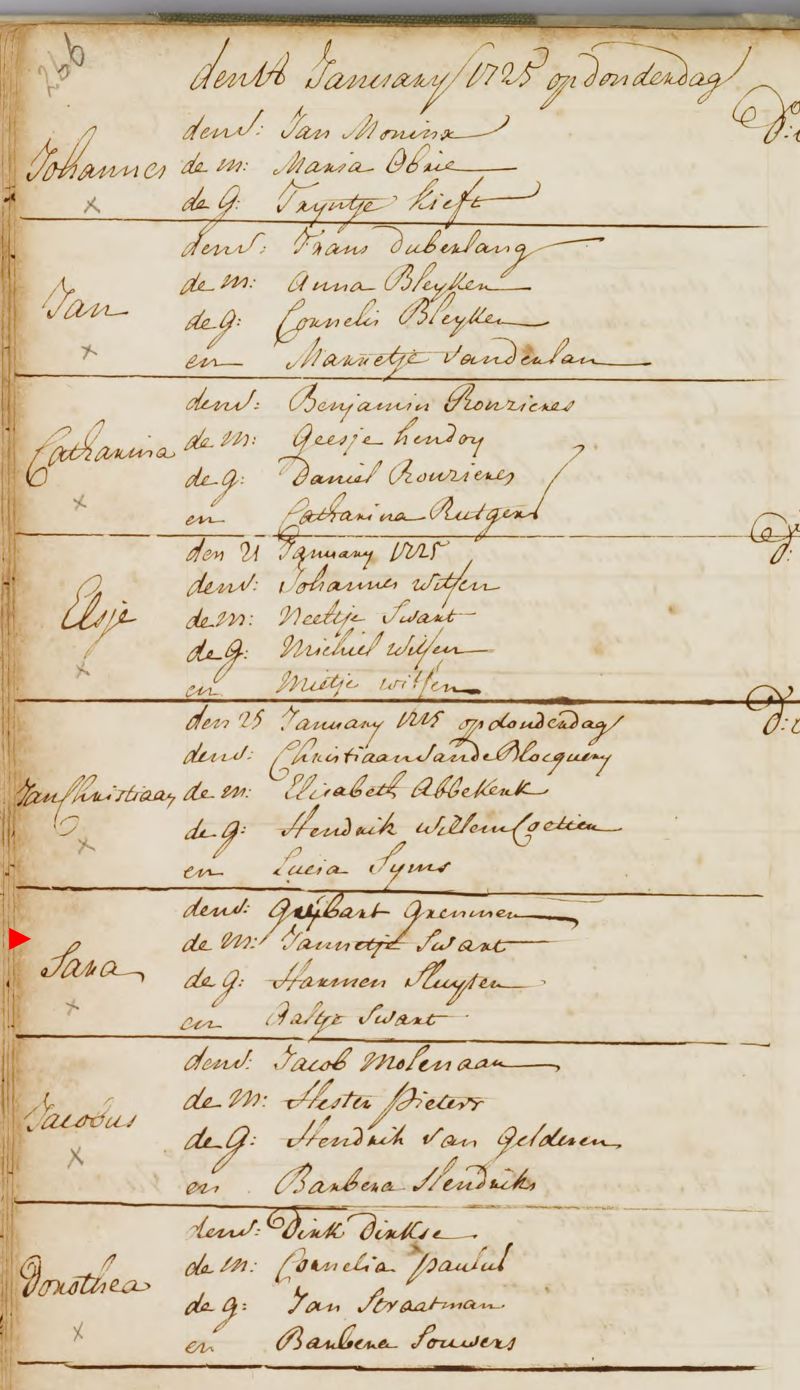 266
den 18 January 1725 op donderdag
denV: Jan Moninx
Johannes de M: Maria Obrie
de G: Tryntje Kieft
denV: Frans Duberlang
de M: Anna Bleyker
Jan de G: Cornelis Bleyker
en Marretje vanderlan
denV: Benjamin Rouzieres
Catharina de M: Geesje hendoy
de G: Daniel Rouzieres
en Catharina Rutgers
den 21 January 1725
denV: Johannes witsen
Elsje de M: Neeltje Swart
de G: Michiel witsen
en Mietje witsen
den 25 January 1725 op donderdag
denV: Christiaan van de Blocquery
Jan Christiaan de M: Elisabeth Abbekerk
de G: Hendrik willem
en Lucia Syms
denV: Gysbart Gremmer
de M: Jannetje Swart
Sara de G: Harmen Sluyter
en Aaltje Swart
denV: Jacob Molenaar
de M: Hester Pieters
Jacobus de G: Hendrik van Gelderen
en Barbera Hendriks
denV: Dirk Dirkse
Dorothea de M: Cornelia Paulus
de G: Jan Straatman
en Barbera Souwers